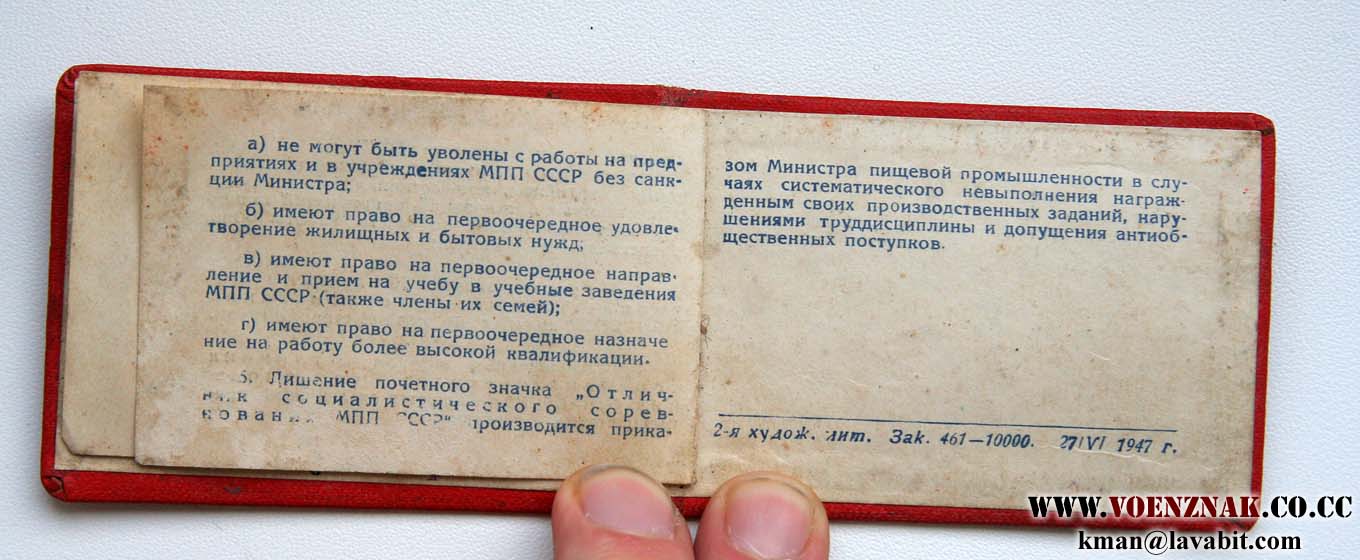 а) не могут быть уволены с работы на пред-
приятиях и в учреждениях МПП СССР без санк-
ции Министра;
б) имеют право на первоочередное удовле-
творение жилищных и бытовых нужд;
в) имеют право на первоочередное направ-
ление и прием на учебу в учебные заведения
МПП СССР (также члены их семей);
г) имеют право на первоочередное назначе
ние на работу более высокой квалификации.
5. Лишение почетного значка „Отлич-
ник социалистического сорев-
нования МПП СССР“ производится прика-
зом Министра пищевой промышленности в слу-
чаях систематического невыполнения награж-
денным своих производственных заданий, нару-
шениями труддисциплины и допущения антиоб-
щественных поступков.
2-я худож. лит. Зак. 461—10000. 27/VI 1947 г.
WWW.VOENZNAK.CO.CC
kman@lavabit.com